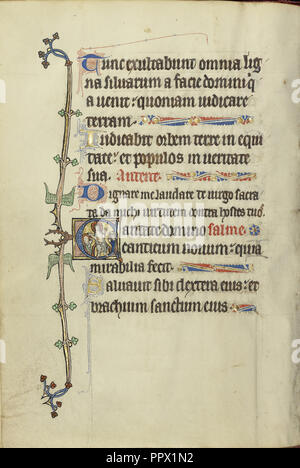 Tunc exultabunt omnia lig
na silvarum a facie domini q
a venit quoniam iudicare
terram
Iudicabit orbem terre in equi
tate et populos in veritate
sua. Antene
Dignare me laudare te virgo sacra
ta da michi virtutem contra hostes tuos
Cantate domino salme
canticum novum quia
mirabilia fecit
Salvavit sibi dextera eius et
brachium sanctum eius
alamy
PPX1N2